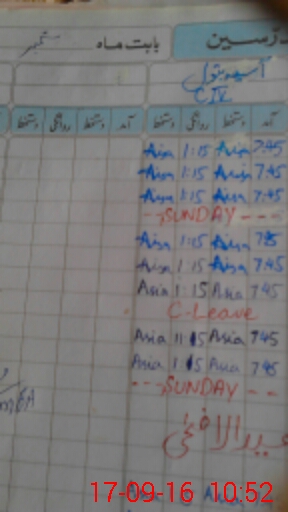 درسین بابت ماہ ستمبر
آسیہ بتول
CIV
آمد دستخط روانگی دستخط آمد دستخط روانگی دستخط
Asia 1:15 Asia 7:45
Asia 1:15 Asia 7:45
Asia 1:15 Asia 7:45
SUNDAY
Asia 1:15 Asia
Asia 1:15 Asia 7:45
Asia 1:15 Asia 7:45
C-Leave
Asia 11:15 Asia 7:45
Asia 1:15 Asia 7:45
SUNDAY
عیدالاضحی
17-09-16 10:52